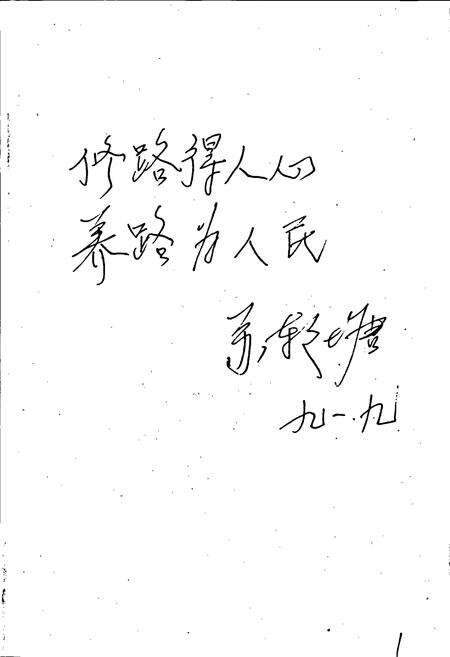 修路得人心
养路为人民
九一.九
1